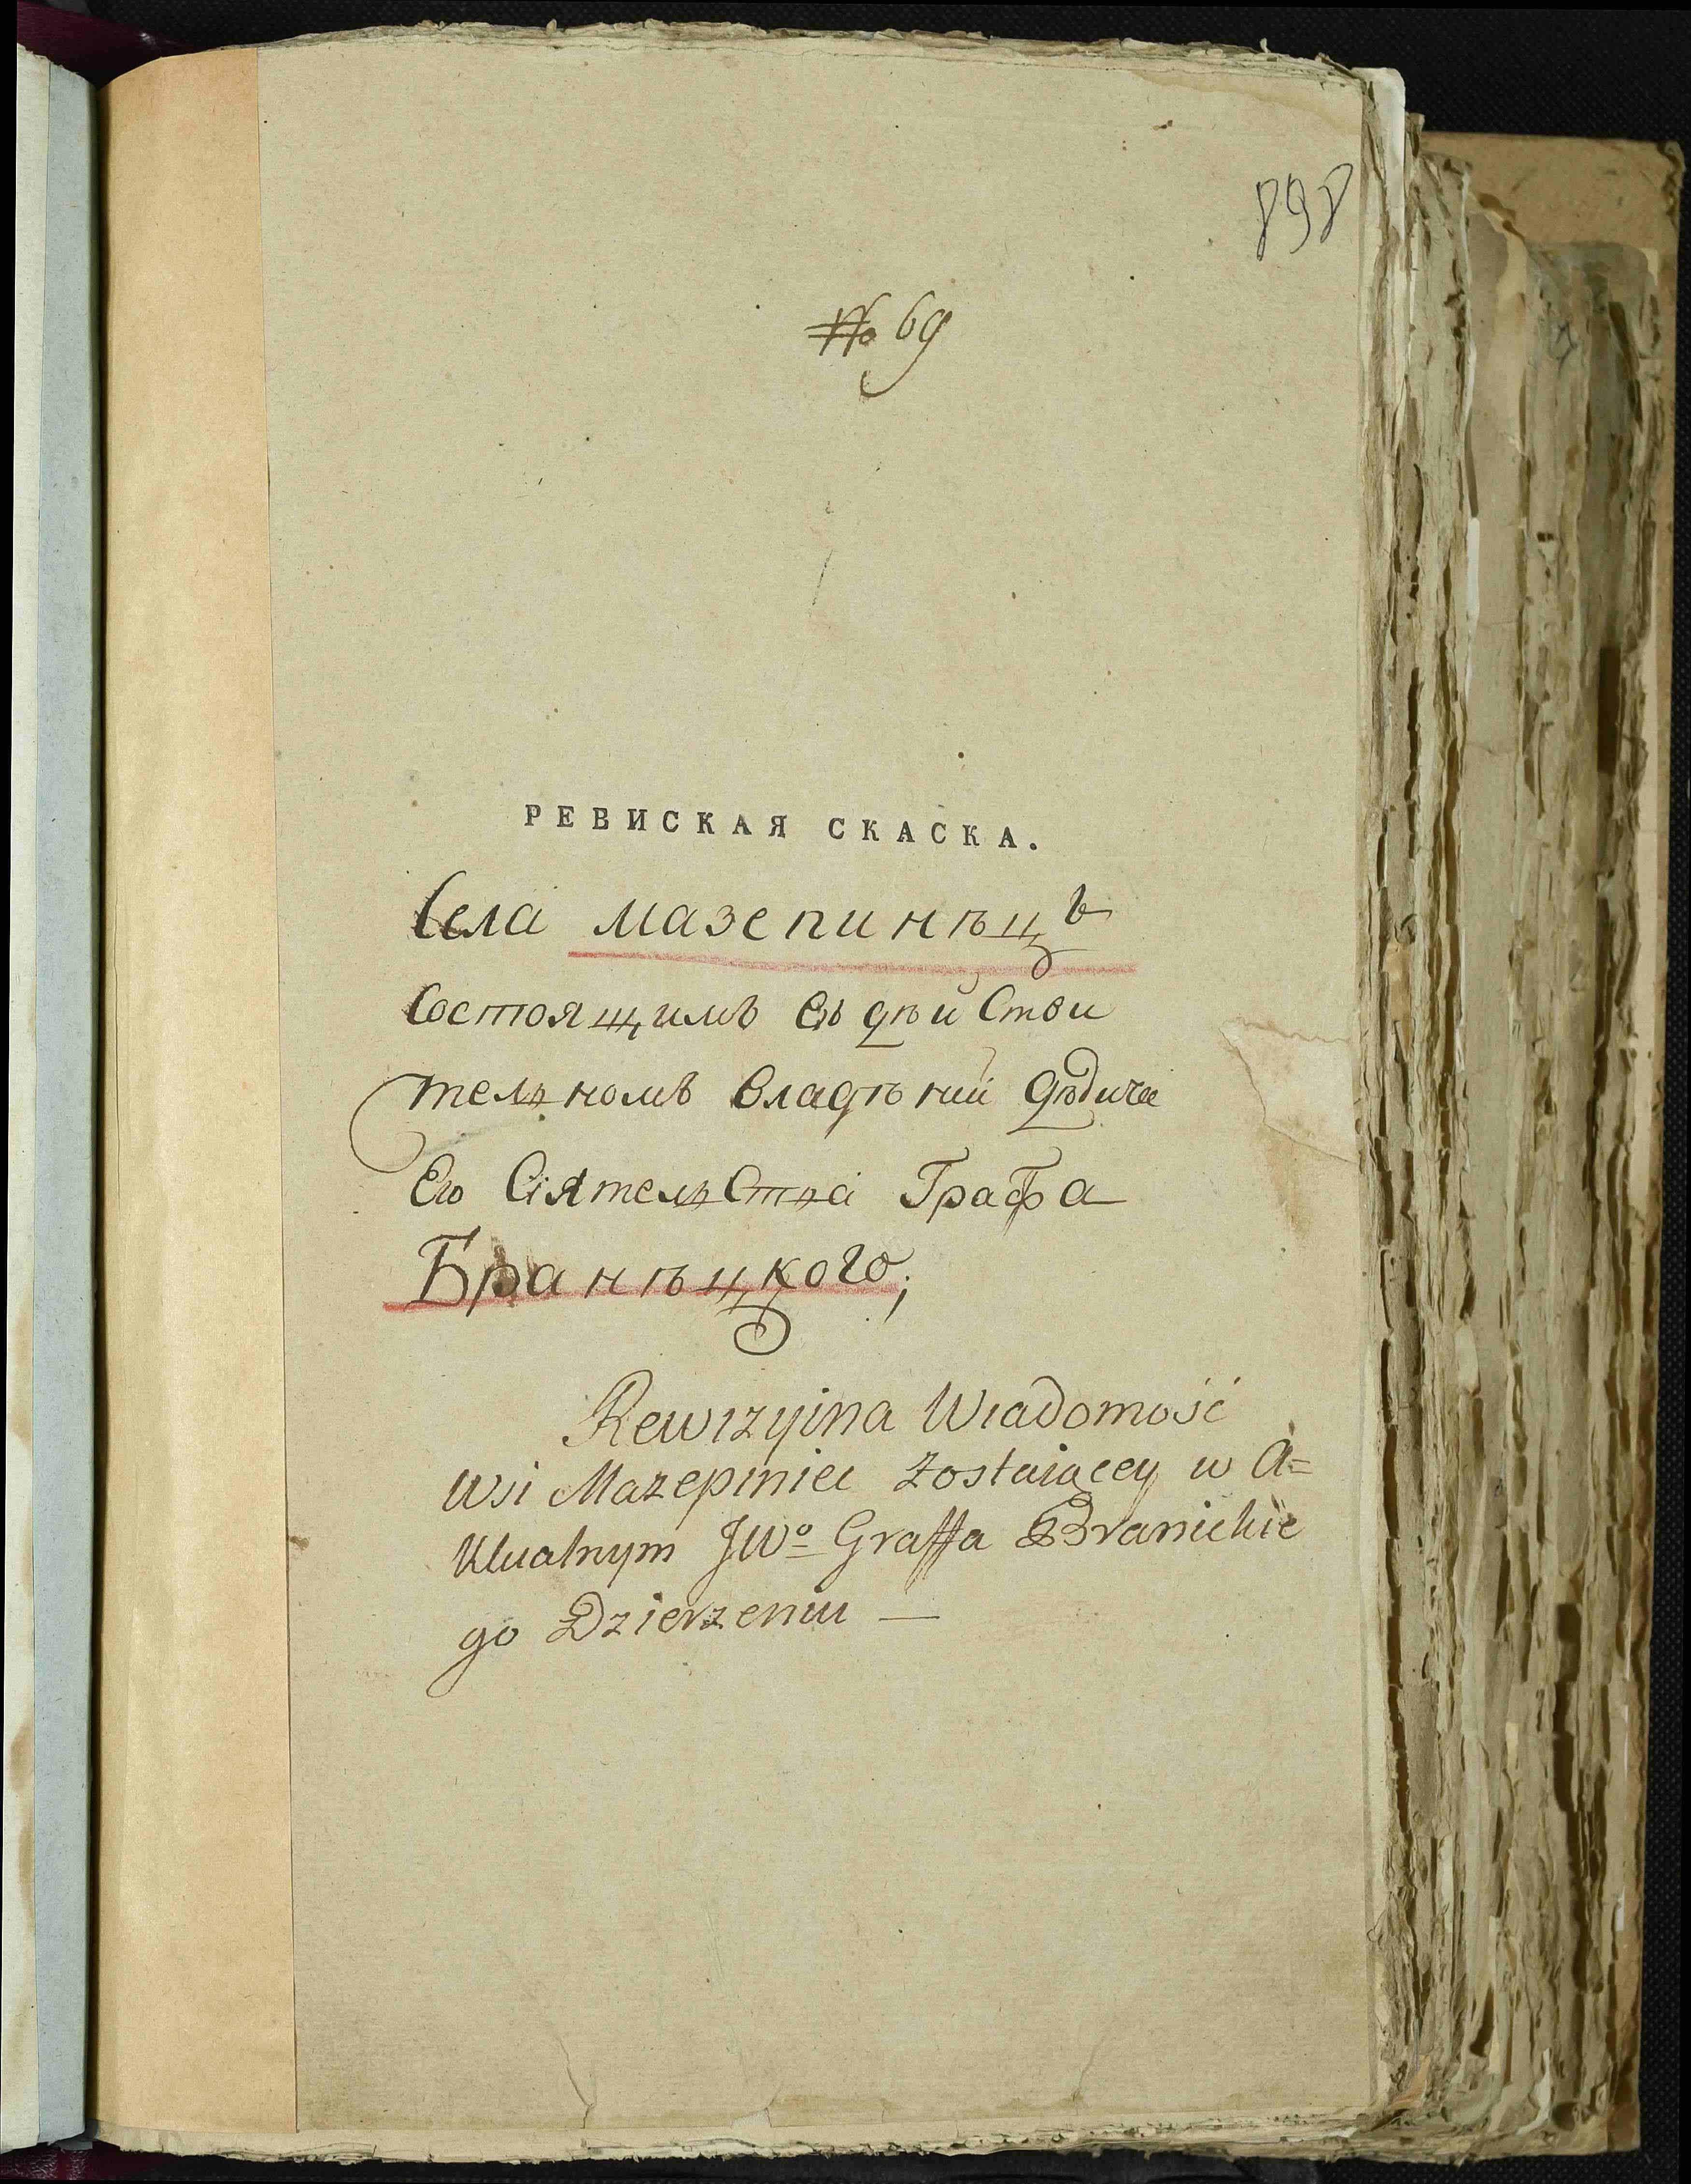 898
№ 69
РЕВИСКАЯ СКАСКА.
Села Мазепинѣцъ
Состоящимъ въ дѣйстви
тельномъ владѣнии дѣдича
Его Сіятельства Графа
Бранѣцкого;
Rewizyina Wiadomość
Wsi Mazepiniec zostaiącey w A=
ktualnym JWº Graffa Branickie
go Dzierżeniu —